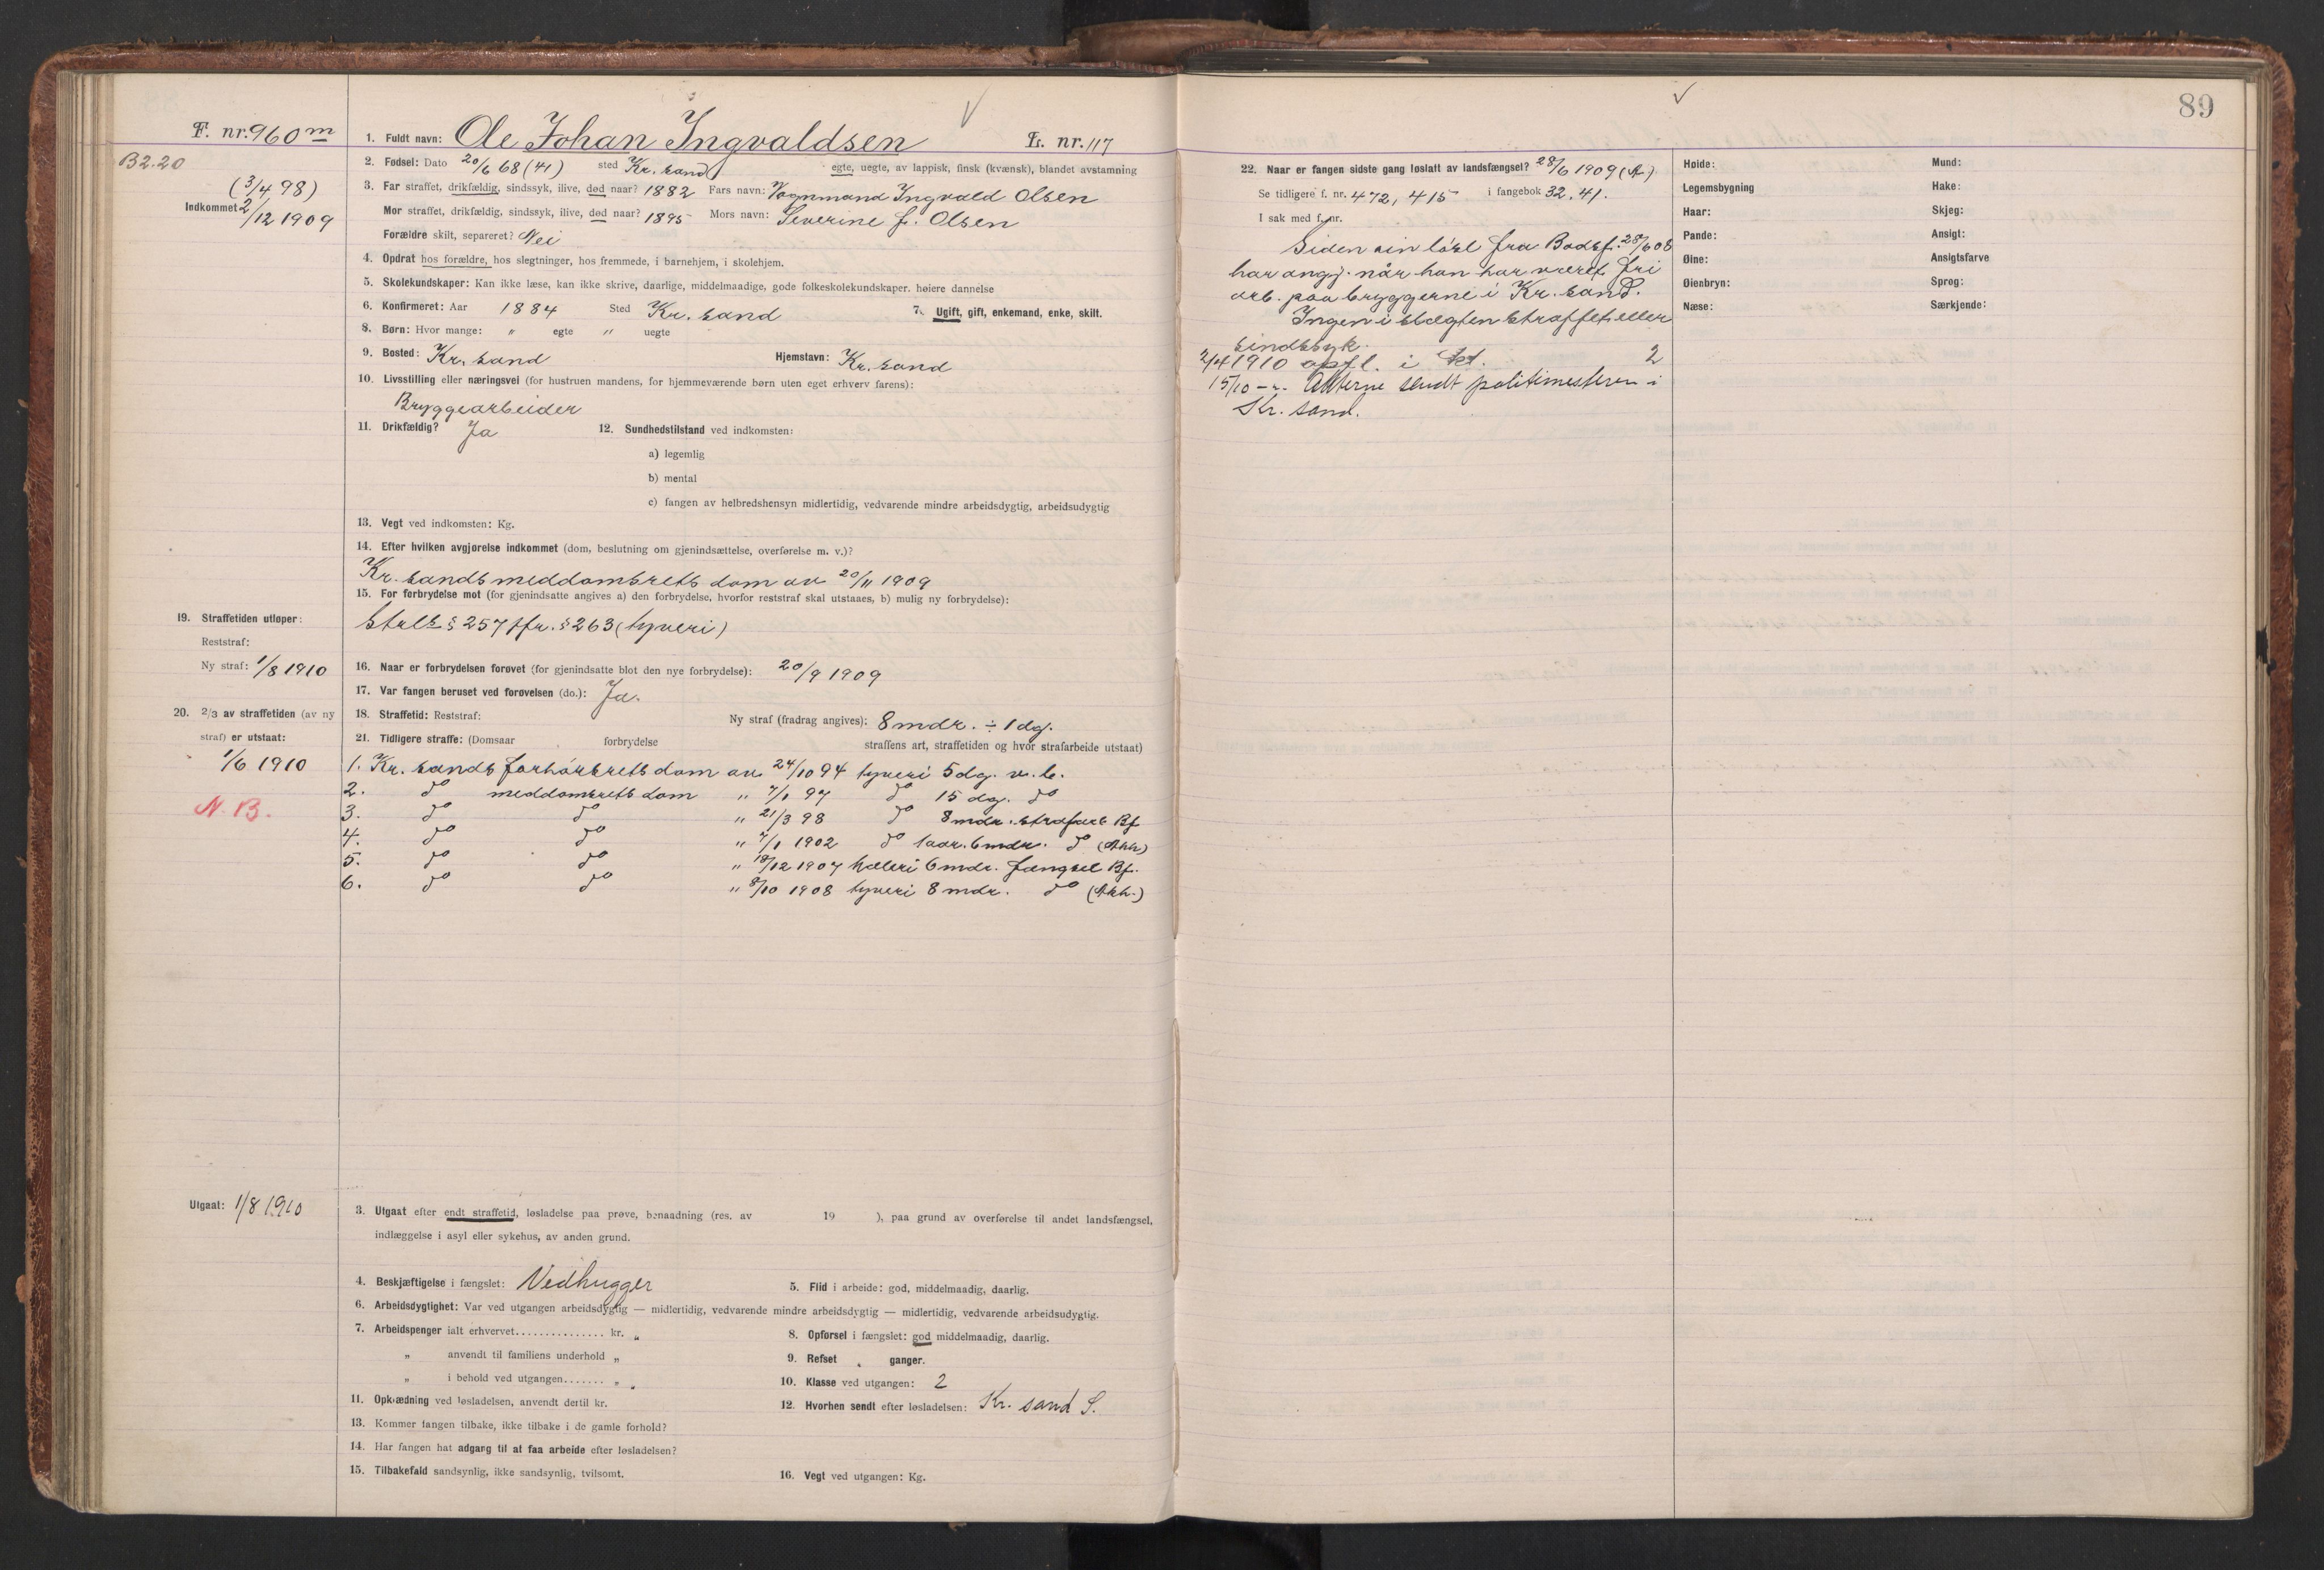 89
F. nr. 960 m
1. Fuldt navn: Ole Johan Ingvaldsen L. nr. 117
B2.20
2. Fødsel: Dato 20/6 68 (41) sted Kr. sand egte, uegte, av lappisk, finsk (kvænsk), blandet avstamning
(3/4 98)
3. Far straffet, drikfældig, sindssyk, ilive, død naar? 1882 Fars navn: Vognmand Ingvald Olsen
Indkommet 2/12 1909
Mor straffet, drikfældig, sindssyk, ilive, død naar? 1895 Mors navn: Severine f. Olsen
Forældre skilt, separeret? Nei
4. Opdrat hos forældre, hos slegtninger, hos fremmede, i barnehjem, i skolehjem.
5. Skolekundskaper: Kan ikke læse, kan ikke skrive, daarlige, middelmaadige, gode folkeskolekundskaper. høiere dannelse
6. Konfirmeret: Aar 1884 Sted Kr. sand 7. Ugift, gift, enkemand, enke, skilt.
8. Børn: Hvor mange: " egte " uegte
9. Bosted: Kr. sand Hjemstavn: Kr. sand
10. Livsstilling eller næringsvei (for hustruen mandens, for hjemmeværende børn uten eget erhverv farens):
Bryggearbeider
11. Drikfældig? Ja 12. Sundhedstilstand ved indkomsten:
a) legemlig
b) mental
c) fangen av helbredshensyn midlertidig, vedvarende mindre arbeidsdygtig, arbeidsudygtig
13. Vegt ved indkomsten: Kg.
14. Efter hvilken avgjørelse indkommet (dom, beslutning om gjenindsættelse, overførelse m. v.)?
Kr. sands meddomsrets dom av 20/11 1909
15. For forbrydelse mot (for gjenindsatte angives a) den forbrydelse, hvorfor reststraf skal utstaaes, b) mulig ny forbrydelse):
Strl's § 257 jfr. § 263 (tyveri)
19. Straffetiden utløper:
Reststraf:
Ny straf: 1/8 1910
16. Naar er forbrydelsen forøvet (for gjenindsatte blot den nye forbrydelse): 20/9 1909
17. Var fangen beruset ved forøvelsen (do.): Ja.
20. 2/3 av straffetiden (av ny
straf) er utstaat:
1/6 1910
N. B.
18. Straffetid: Reststraf: Ny straf (fradrag angives): 8 mdr. ÷ 1 dg.
21. Tidligere straffe: (Domsaar forbrydelse straffens art, straffetiden og hvor strafarbeide utstaat)
1. Kr. sands forhørsrets dom av 24/10 94 tyveri 5 dg. v. b.
2. do meddomsrets dom " 7/1 97 do 15 dg. do
3. do do " 21/3 98 do 8 mdr. strafarb Bf.
4. do do " 7/1 1902 do 1 aar. 6 mdr. do (Akh)
5. do do " 19/12 1907 hæleri 6 mdr. fængsel Bf.
6. do do " 8/10 1908 tyveri 8 mdr. do (Akh.)
Utgaat: 1/8 1910
3. Utgaat efter endt straffetid, løsladelse paa prøve, benaadning (res. av 19 ), paa grund av overførelse til andet landsfængsel,
indlæggelse i asyl eller sykehus, av anden grund.
4. Beskjæftigelse i fængslet: Vedhugger 5. Flid i arbeide: god, middelmaadig, daarlig.
6. Arbeidsdygtighet: Var ved utgangen arbeidsdygtig — midlertidig, vedvarende mindre arbeidsdygtig — midlertidig, vedvarende arbeidsudygtig.
7. Arbeidspenger ialt erhvervet............... kr. „ 8. Opførsel i fængslet: god middelmaadig, daarlig.
„ anvendt til familiens underhold „ 9. Refset „ ganger.
„ i behold ved utgangen....... „ „ 10. Klasse ved utgangen: 2
11. Opklædning ved løsladelsen, anvendt dertil kr. 12. Hvorhen sendt efter løsladelsen: Kr. sand S.
13. Kommer fangen tilbake, ikke tilbake i de gamle forhold?
14. Har fangen hat adgang til at faa arbeide efter løsladelsen?
15. Tilbakefald sandsynlig, ikke sandsynlig, tvilsomt. 16. Vegt ved utgangen: Kg.
22. Naar er fangen sidste gang løslatt av landsfængsel? 28/6 1909 (A)
Se tidligere f. nr. 472, 415 i fangebok 32, 41.
I sak med f. nr.
Siden sin løsl fra Bodsf. 28/6 08
har angj. når han har været fri
arb. paa bryggerne i Kr. sand.
Ingen i slægten straffet eller
sindssyk.
2/4 1910 opfl. i kl. 2
15/10 - ". Akterne sendt politimesteren i
Kr. sand.
Høide: Mund:
Legemsbygning Hake:
Haar: Skjeg:
Pande: Ansigt:
Øine: Ansigtsfarve
Øienbryn: Sprog:
Næse: Særkjende: